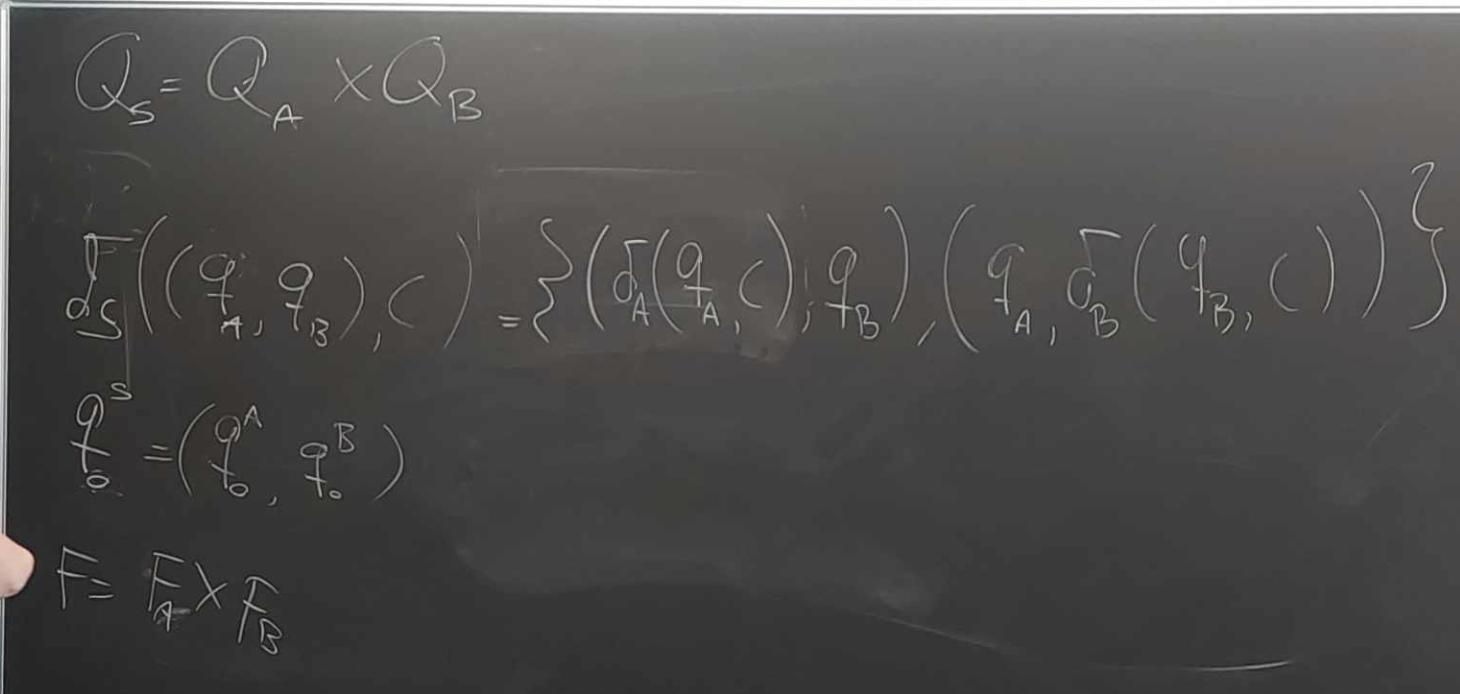 Q_S = Q_A × Q_B
δ_S((q_A, q_B), c) = {(δ_A(q_A, c), q_B), (q_A, δ_B(q_B, c))}
q_0^S = (q_0^A, q_0^B)
F = F_A × F_B